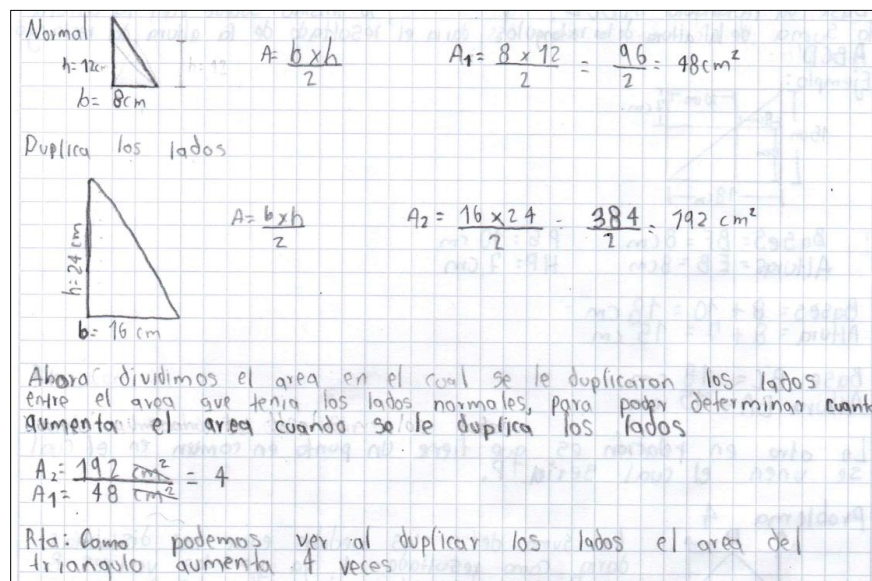 Normal
h= 12cm
h= 12
b= 8cm
A= b x h / 2
A1 = 8 x 12 / 2 = 96 / 2 = 48 cm²
Duplica los lados
h= 24 cm
b= 16 cm
A= b x h / 2
A2 = 16 x 24 / 2 = 384 / 2 = 192 cm²
Ahora dividimos el area en el cual se le duplicaron los lados
entre el area que tenia los lados normales, para poder determinar cuanto
aumenta el area cuando se le duplica los lados
A2 = 192 cm² / A1 = 48 cm² = 4
Rta: Como podemos ver al duplicar los lados el area del
triangulo aumenta 4 veces